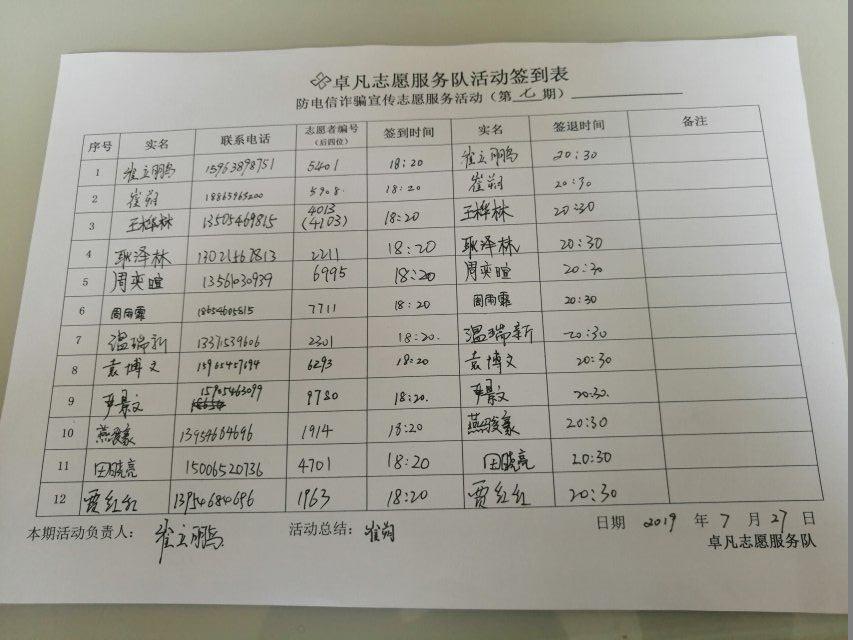 卓凡志愿服务队活动签到表
防电信诈骗宣传志愿服务活动（第 七 期）
序号 实名 联系电话 志愿者编号（后四位） 签到时间 实名 签退时间 备注
1 崔立鹏 15963898751 5401 18:20 崔立鹏 20:30
2 崔朔 18865965200 5908 18:20 崔朔 20:30
3 王桦林 13505469815 4013 (4103) 18:20 王桦林 20:30
4 耿泽林 13021467813 2211 18:20 耿泽林 20:30
5 周奕暄 13561030939 6995 18:20 周奕暄 20:30
6 周雨霏 18654605815 7711 18:20 周雨霏 20:30
7 温瑞新 13371539606 2301 18:20. 温瑞新 20:30
8 袁博文 6293 18:20 袁博文 20:30
9 尹景文 15905463099 9780 18:20. 尹景文 20:30.
10 燕骏豪 13954684696 1914 18:20 燕骏豪 20:30
11 田晓亮 15006520736 4701 18:20 田晓亮 20:30
12 贾红红 13954684696 1963 18:20 贾红红 20:30
本期活动负责人： 崔立鹏 活动总结： 崔朔 日期 2019 年 7 月 27 日
卓凡志愿服务队